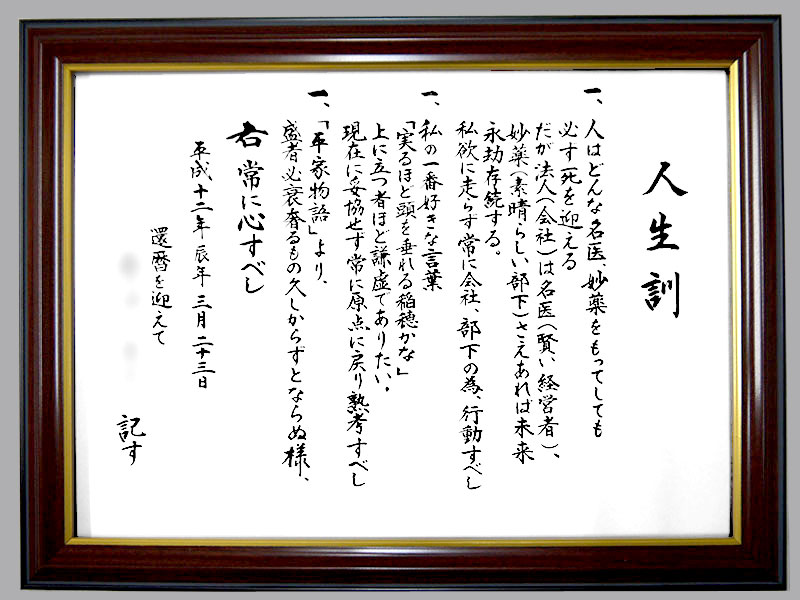 人生訓
一、人はどんな名医、妙薬をもってしても
必ず死を迎える
だが法人(会社)は名医(賢い経営者)、
妙薬(素晴らしい部下)さえあれば未来
永劫存続する。
私欲に走らず常に会社、部下の為、行動すべし
一、私の一番好きな言葉
「実るほど頭を垂れる稲穂かな」
上に立つ者ほど謙虚でありたい。
現在に妥協せず常に原点に戻り熟考すべし
一、「平家物語」より、
盛者必衰奢るもの久しからずとならぬ様、
右常に心すべし
平成十二年辰年三月二十三日
還暦を迎えて
記す